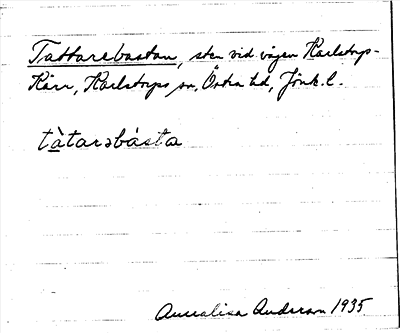 Tattarebastan, sten vid vägen Karlstorp-
Kärr, Karlstorps sn, Östra hd, Jönk. l.
tàtarəbásta
Annalisa Andersson 1935